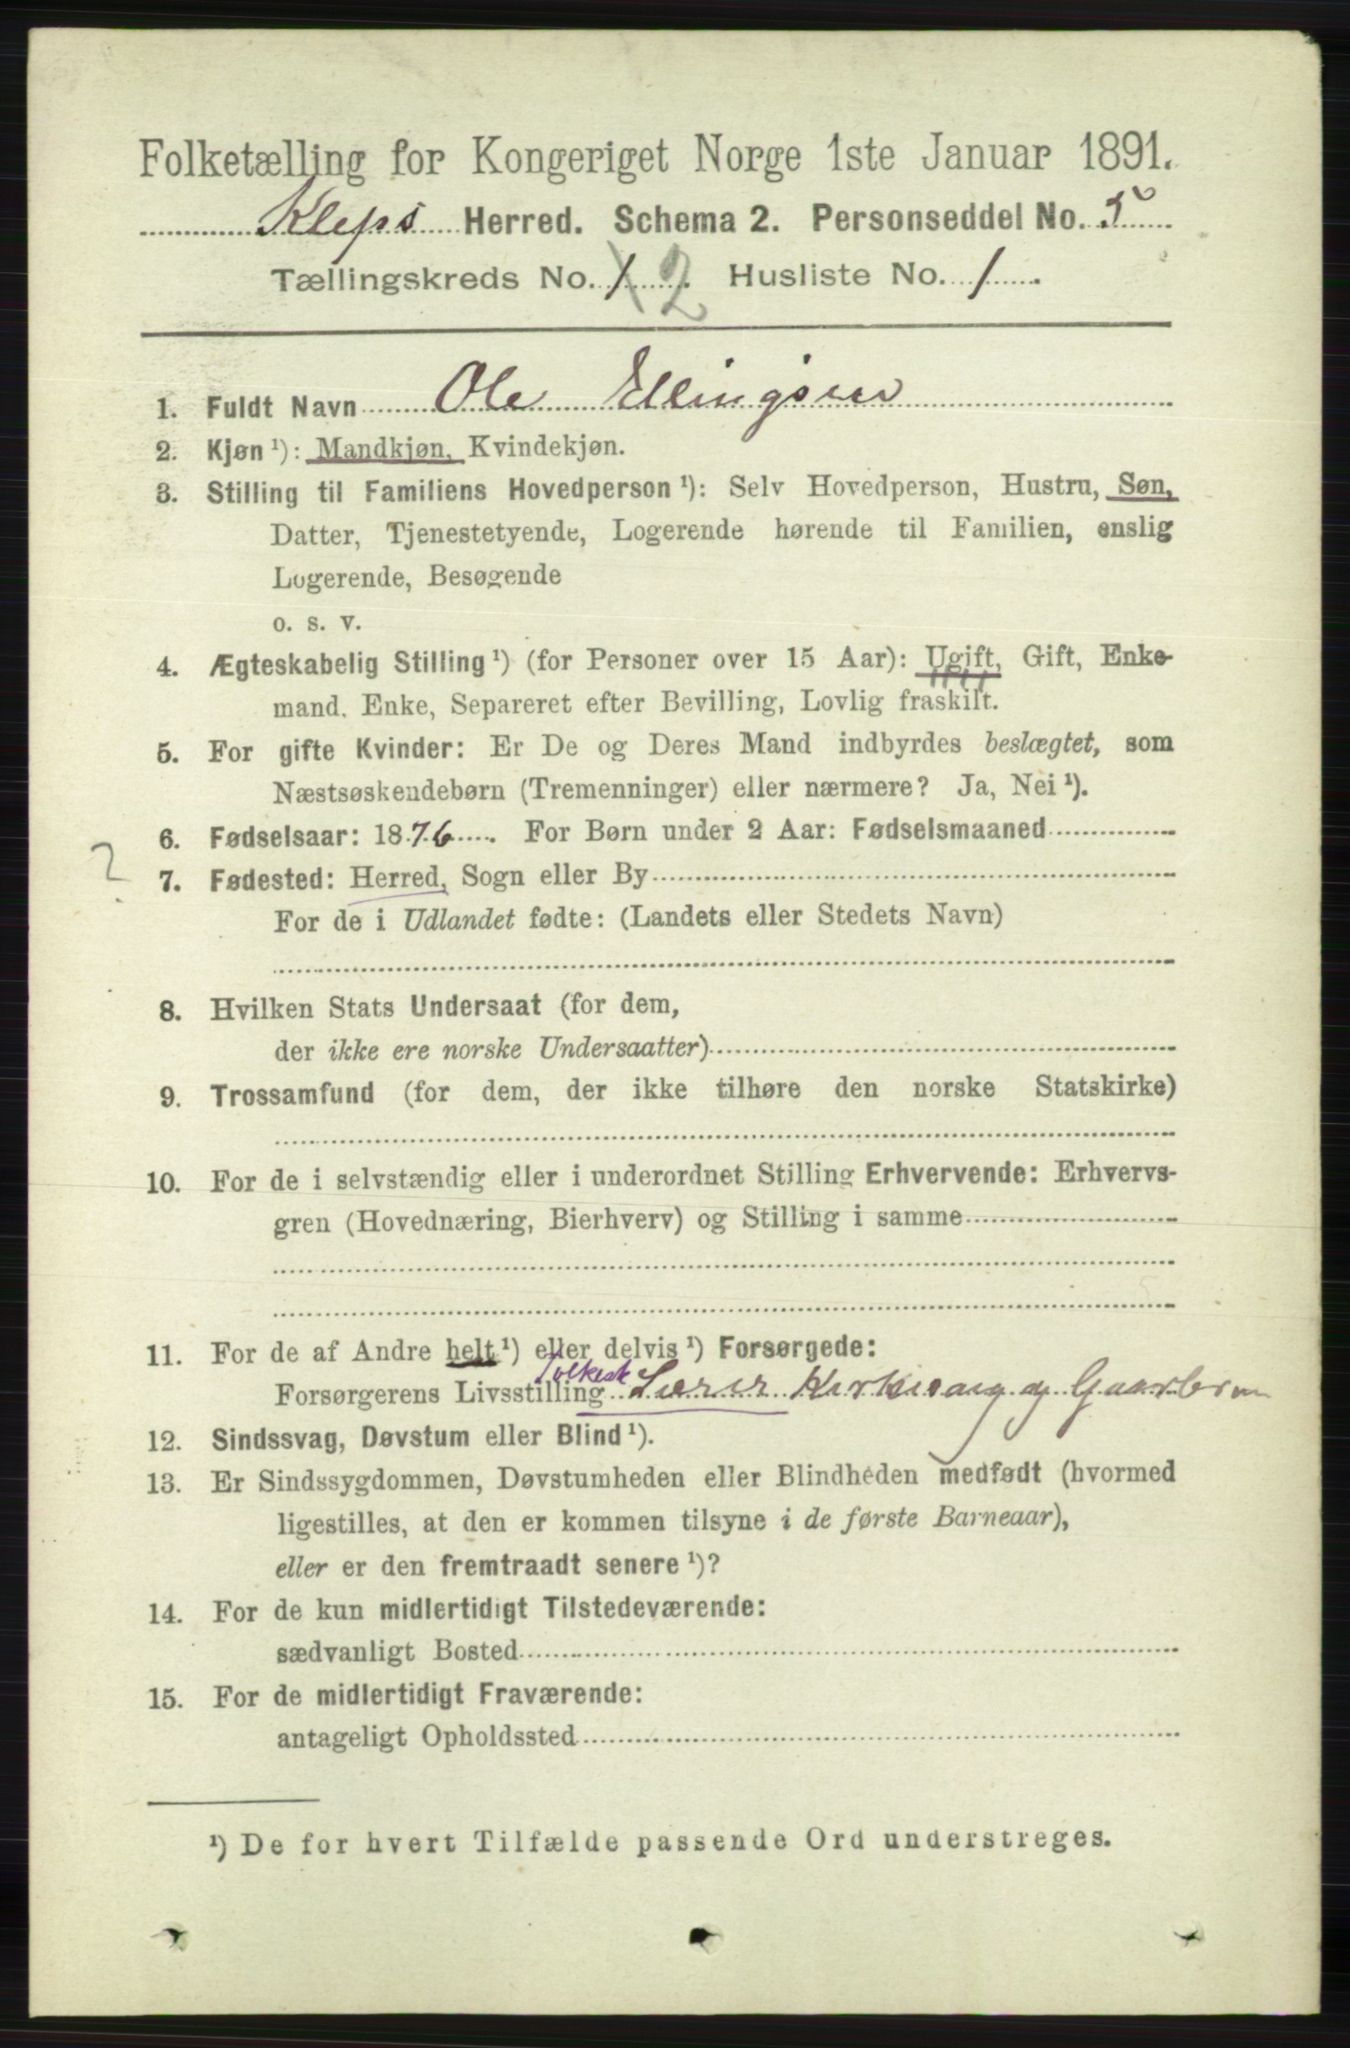 Folketælling for Kongeriget Norge 1ste Januar 1891.
Kleps Herred. Schema 2. Personseddel No. 5
Tællingskreds No. 1 2 Husliste No. 1
1. Fuldt Navn Ole Ellingsen
2. Kjøn ¹): Mandkjøn, Kvindekjøn.
3. Stilling til Familiens Hovedperson ¹): Selv Hovedperson, Hustru, Søn,
Datter, Tjenestetyende, Logerende hørende til Familien, enslig
Logerende, Besøgende
o. s. v.
4. Ægteskabelig Stilling ¹) (for Personer over 15 Aar): Ugift, Gift, Enke-
mand, Enke, Separeret efter Bevilling, Lovlig fraskilt.
5. For gifte Kvinder: Er De og Deres Mand indbyrdes beslægtet, som
Næstsøskendebørn (Tremenninger) eller nærmere? Ja, Nei ¹).
6. Fødselsaar: 1876. For Børn under 2 Aar: Fødselsmaaned
? 7. Fødested: Herred, Sogn eller By
For de i Udlandet fødte: (Landets eller Stedets Navn)
8. Hvilken Stats Undersaat (for dem,
der ikke ere norske Undersaatter)
9. Trossamfund (for dem, der ikke tilhøre den norske Statskirke)
10. For de i selvstændig eller i underordnet Stilling Erhvervende: Erhvervs-
gren (Hovednæring, Bierhverv) og Stilling i samme
11. For de af Andre helt ¹) eller delvis ¹) Forsørgede:
Forsørgerens Livsstilling Folkesk Lærer Kirkesang og Gaarbrm
12. Sindssvag, Døvstum eller Blind ¹).
13. Er Sindssygdommen, Døvstumheden eller Blindheden medfødt (hvormed
ligestilles, at den er kommen tilsyne i de første Barneaar),
eller er den fremtraadt senere ¹)?
14. For de kun midlertidigt Tilstedeværende:
sædvanligt Bosted
15. For de midlertidigt Fraværende:
antageligt Opholdssted
¹) De for hvert Tilfælde passende Ord understreges.